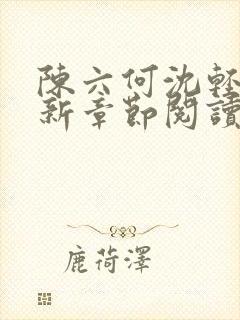 陳六何沈輕
新章節閱讀
鹿荷澤